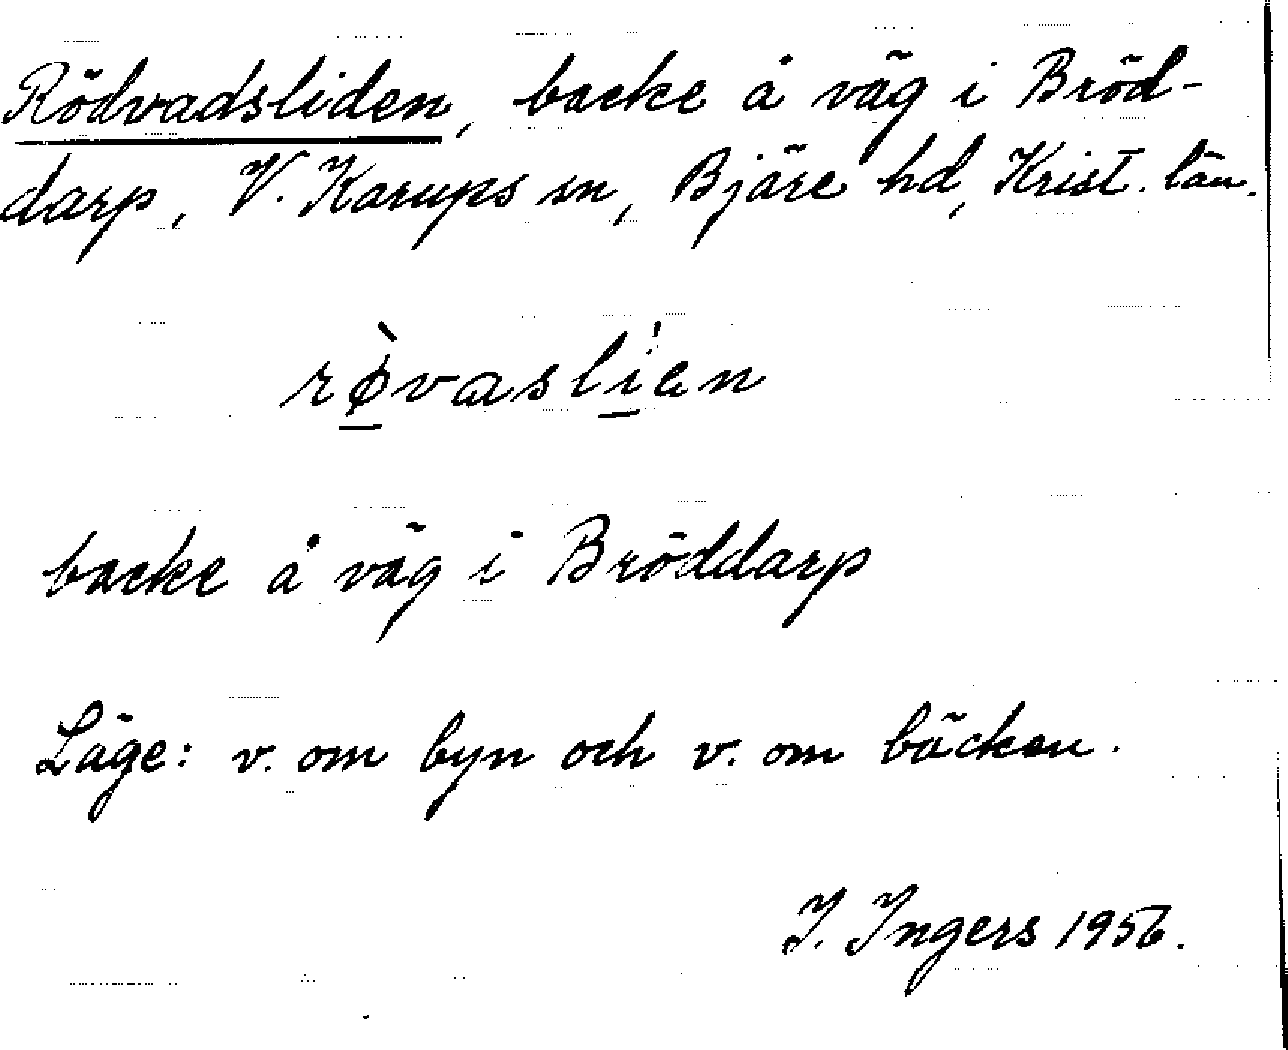 Rödvadsliden, backe å väg i Bröd-
darp, V. Karups sn, Bjäre hd, Krist. län.
rø̀vasli̍en
backe å väg i Bröddarp
Läge: v. om byn och v. om bäcken.
I. Ingers 1956.